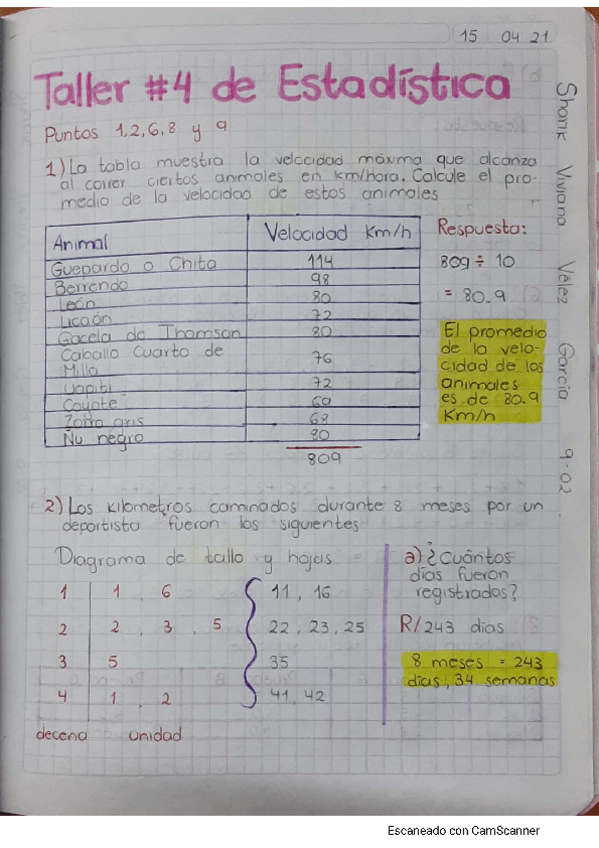 15 04 21
Taller #4 de Estadística
Puntos 1,2,6,8 y 9
1) La tabla muestra la velocidad máxima que alcanza
al correr ciertos animales en km/hora. Calcule el pro-
medio de la velocidad de estos animales
Animal Velocidad Km/h
Guepardo o Chita 114
Berrendo 98
León 80
Licaón 72
Gacela de Thomson 80
Caballo Cuarto de
Milla 76
Uapiti 72
Coyote 69
Zorro gris 68
Ñu negro 80
809
Respuesta:
809 ÷ 10
= 80.9
El promedio
de la velo-
cidad de los
animales
es de 80.9
Km/h
Shank Viviana Vélez García 9-02
2) Los kilometros caminados durante 8 meses por un
deportista fueron los siguientes
Diagrama de tallo y hojas =
1 1, 6 11, 16
2 2, 3, 5 22, 23, 25
3 5 35
4 1, 2 41, 42
decena unidad
a) ¿Cuántos
días fueron
registrados?
R/ 243 días
8 meses = 243
días, 34 semanas
Escaneado con CamScanner